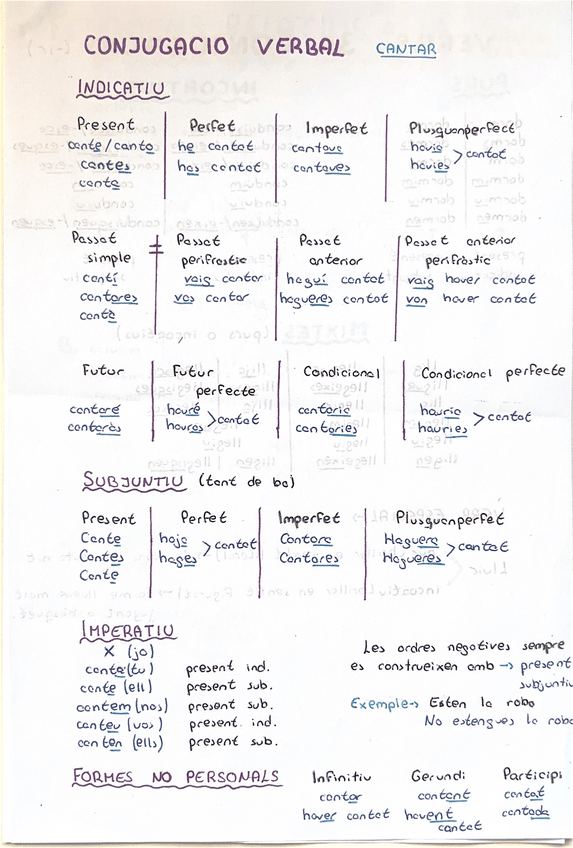 CONJUGACIO VERBAL CANTAR
INDICATIU
Present Perfet Imperfet Plusquanperfect
cante/canto he cantat cantava havia
cantes has cantat cantaves havies > cantat
canta
Passat simple ≠ Passat perifràstic Passat anterior Passat anterior perifràstic
cantí vaig cantar haguí cantat vaig haver cantat
cantares vas cantar hagueres cantat van haver cantat
cantà
Futur Futur perfecte Condicional Condicional perfecte
cantaré hauré cantaria hauria
cantaràs hauras > cantat cantaries hauries > cantat
SUBJUNTIU (tant de bo)
Present Perfet Imperfet Plusquanperfet
Cante haja Cantara Haguera
Cantes hages > cantat Cantares Hagueres > cantat
Cante
IMPERATIU
X (jo)
canta (tu) present ind.
cante (ell) present sub.
cantem (nos) present sub.
canteu (vos) present ind.
canten (ells) present sub.
Les ordres negatives sempre
es construeixen amb → present
subjuntiu
Exemple → Esten la roba
No estengues la roba
FORMES NO PERSONALS Infinitiu Gerundi Participi
cantar cantant cantat
haver cantat havent cantada
cantat